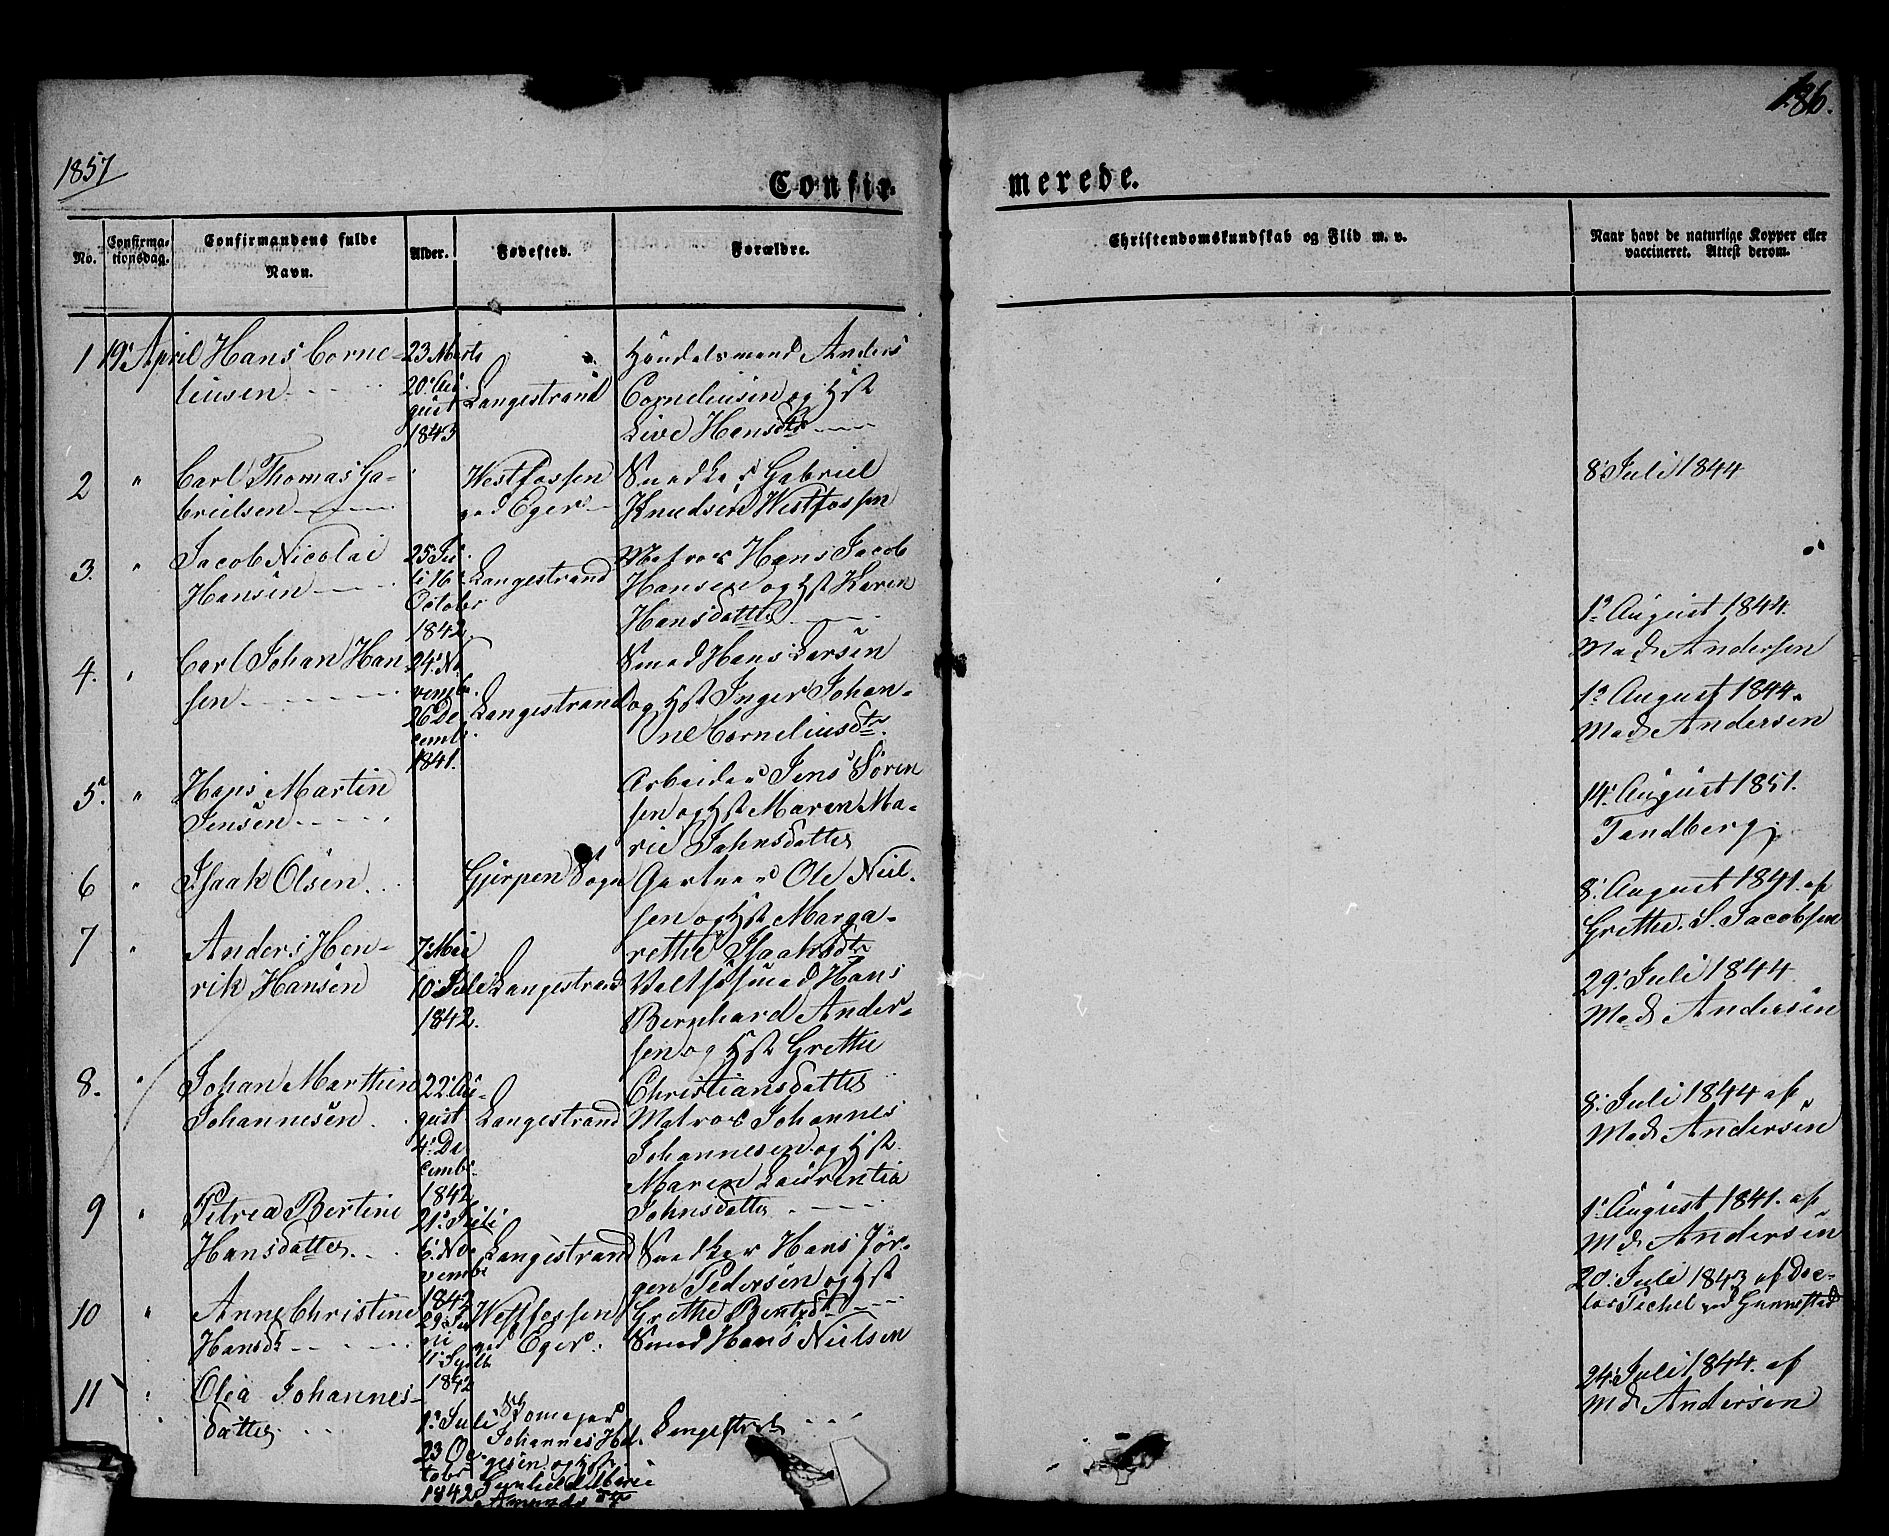 186.
1857
Confir-
merede.
No.
Confirma-
tionsdag.
Confirmandens fulde
Navn.
Alder.
Fødested.
Forældre.
Christendomskundskab og Flid m. v.
Naar havt de naturlige Kopper eller
vaccineret. Attest derom.
1 19' April Hans Corne-
liusen
23 Marts
20' Au-
gust
1843
Langestrand
Handelsmand Anders
Corneliusen og Hst
Live Hansdtr
2 " Carl Thomas Ga-
brielsen
Westfossen
paa Eger
Snedker Gabriel
Knudsen Westfossen
8' Juli 1844
3. " Jacob Nicolai
Hansen
25' Ju-
li 16'
October
1842.
Langestrand
Matros Hans Jacob
Hansen og Hst Karen
Hansdatter
1' August 1844.
Mad. Andersen
4. " Carl Johan Han
sen
24' No
vembr.
26' De
cembr.
1841.
Langestrand
Smed Hans Larsen
og Hst Inger Johan-
ne Corneliusdtr
1' August 1844.
Mad. Andersen
5. " Hans Martin
Jensen
Arbeider Jens Sören
sen og Hst Maren Ma-
rie Johnsdatter
14' August 1851.
Tandberg
6 " Isaak Olsen
Gjerpen Sogn
Gartner Ole Niel-
sen og Hst Marga-
rethe Isaaksdtr
8' August 1841. af
Grethe S. Jacobsen
7 " Anders Hen-
rik Hansen
7' Mai
10' Juli
1842.
Langestrand
Valtsesmed Hans
Bernhard Ander-
sen og Hst Grethe
Christiansdatter
29' Juli 1844
Mad. Andersen
8. " Johan Marthin
Johannesen
22' Au-
gust
4' De
cembr.
1842
Langestrand
Matros Johannes
Johannesen og Hst.
Maren Laurentia
Johnsdatter
8' Juli 1844 af
Mad. Andersen
9 " Petrea Bertine
Hansdatter
21' Juli
6' No-
vembr
1842
Langestrand
Snedker Hans Jør-
gen Pedersen og Hst
Grethe Berntsdtr
1' August 1841. af
Md. Andersen
10 " Anne Christine
Hansdt
29' Ju
ni
11' Septb
1842
Westfossen
paa Eger.
Smed Hans Nielsen
20' Juli 1843 af Doc-
tor Pechel paa Gunnestad
11 " Olea Johannes-
datter
1' Juli
23 Oc-
tober
1842
Johannes Hel-
gesen og Hst.
Langestrand
24' Juli 1844. af
Md. Andersen